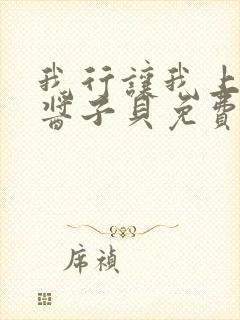 我行讓我上
醬子貝免費
席禎